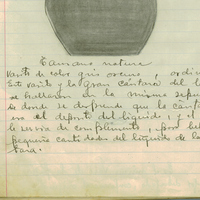 Tamaño natural
Vasito de color gris oscuro, ordin
Este vasito y la gran cántara del
se hallaron en la misma sepul
de donde se desprende que la cánt
era el deposit del líquido, y el
le servía de complemento, por be
pequeña cantidades del líquido de la
tara.